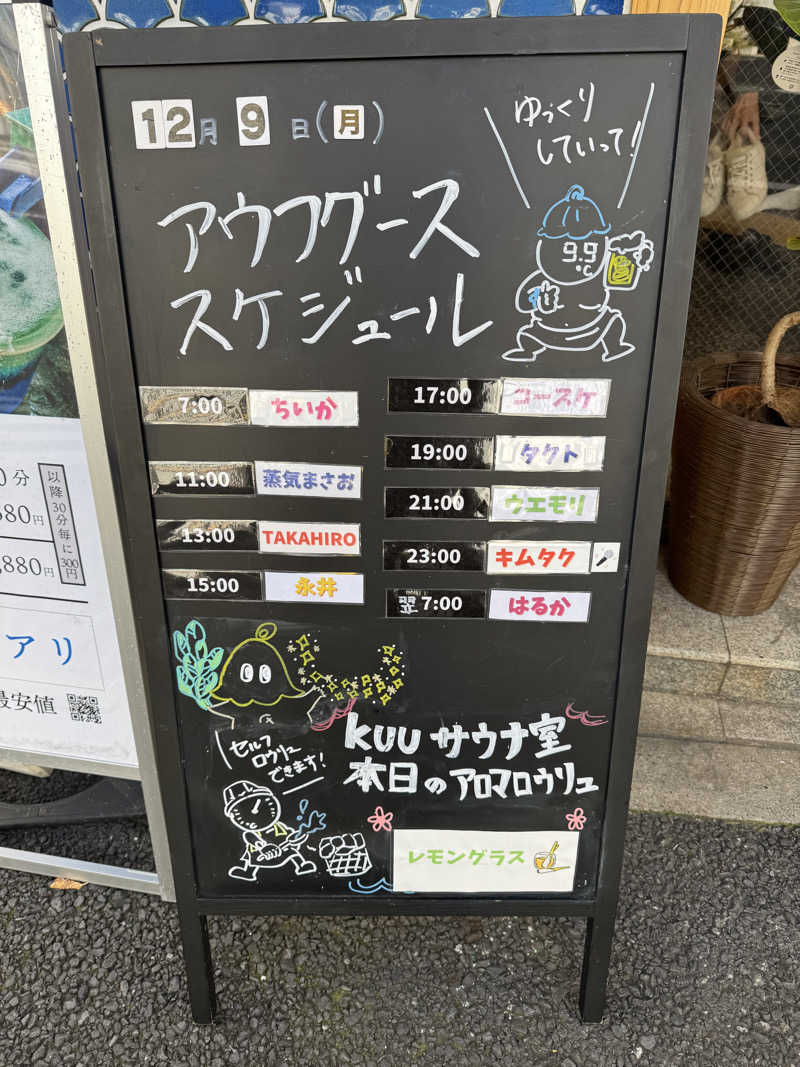 12月9日(月)
ゆっくり
していって!
アウフグース
スケジュール
9.9
℃
7:00 ちいか
11:00 蒸気まさお
13:00 TAKAHIRO
15:00 永井
17:00 コースケ
19:00 タクト
21:00 ウエモリ
23:00 キムタク
翌 7:00 はるか
セルフ
ロウリュ
できます!
KUU サウナ室
本日のアロマロウリュ
レモングラス
0分
880円
以降30分毎に300円
,880円
アリ
最安値